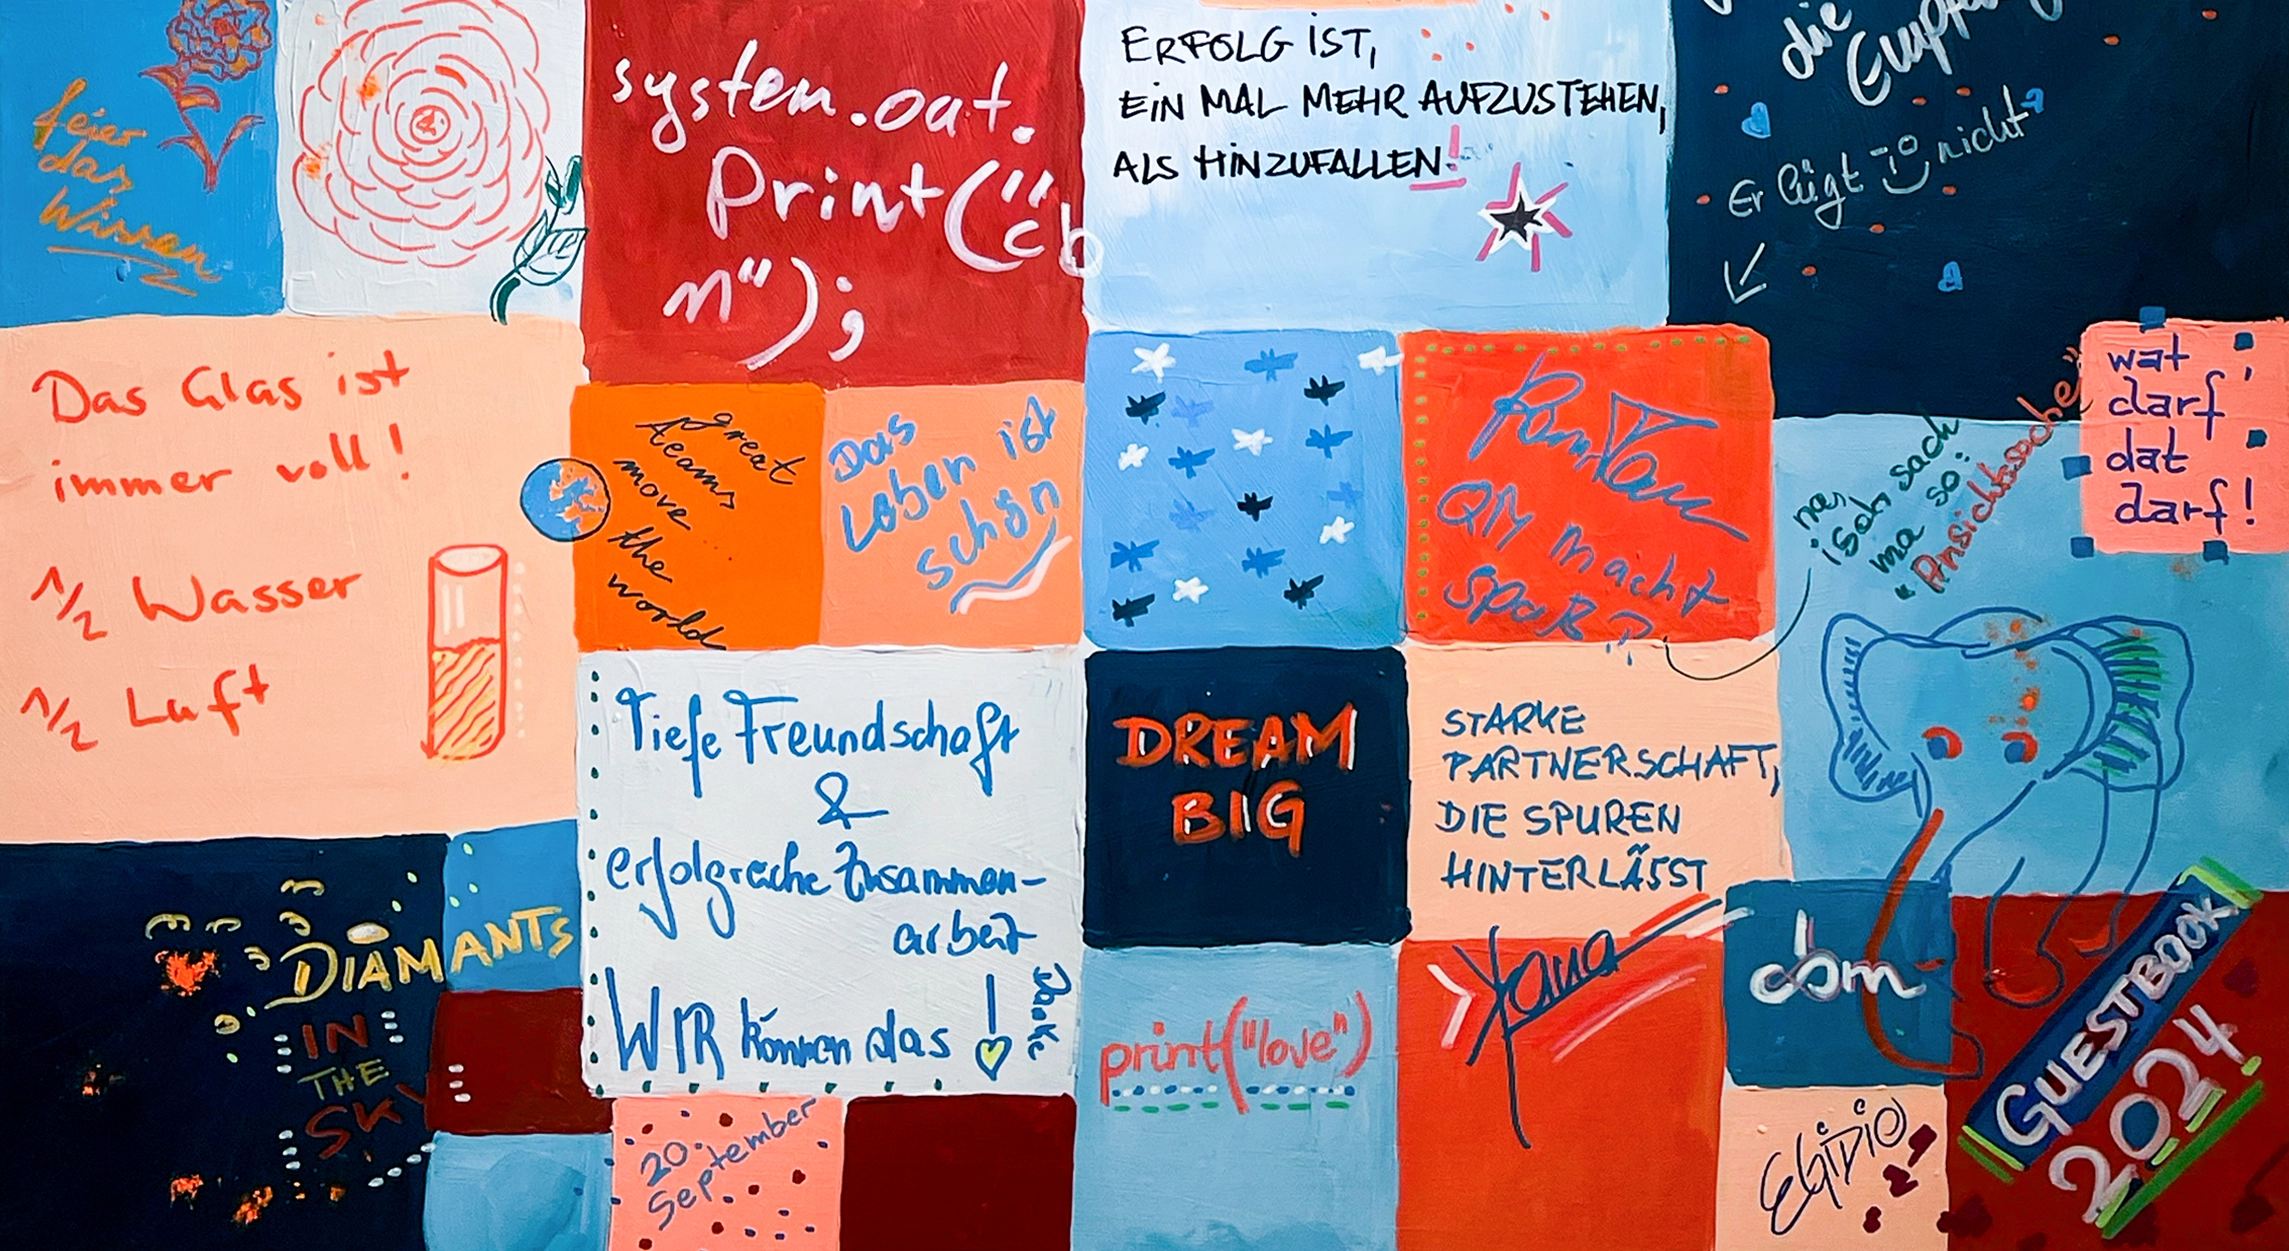 feier
das
Wissen
system.out.
Print("cb
n");
ERFOLG IST,
EIN MAL MEHR AUFZUSTEHEN,
ALS HINZUFALLEN!
die
Er lügt nicht
Das Glas ist
immer voll!
1/2 Wasser
1/2 Luft
great
teams
move
the
world
Das
Leben ist
schön
QM macht
Spaß
isch sach
ma so:
"Ansichtssache"
wat
darf,
dat
darf!
Tiefe Freundschaft
&
erfolgreiche Zusammen-
arbeit
WIR können das!
Danke
DREAM
BIG
STARKE
PARTNERSCHAFT,
DIE SPUREN
HINTERLÄSST
DIAMANTS
IN
THE
SKY
20.
September
print("love")
cbm
EGIDIO
GUESTBOOK
2024